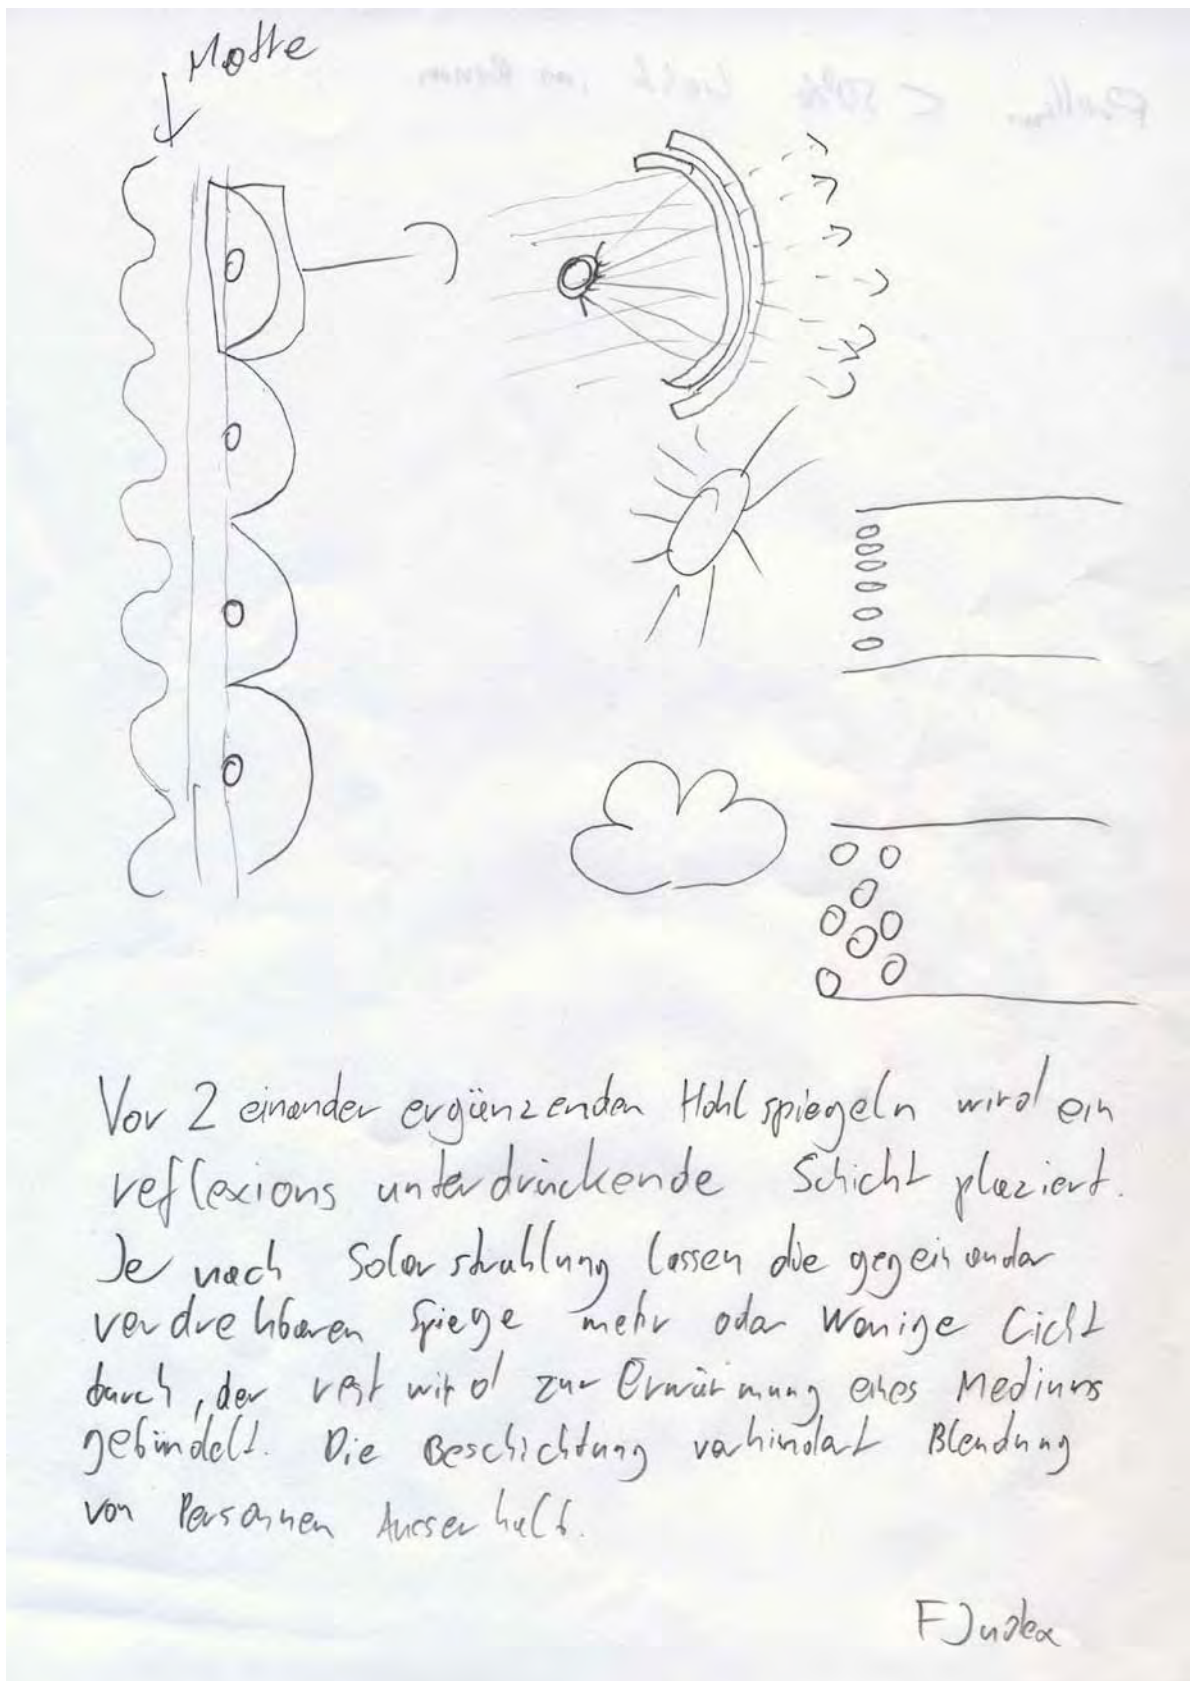 Motte
Vor 2 einander ergänzenden Hohlspiegeln wird ein
reflexions unterdrückende Schicht plaziert.
Je nach Solarstrahlung lassen die gegeinander
verdrehbaren Spiege mehr oder Wenige Licht
durch, der rest wird zur Erwärmung eines Mediums
gebündelt. Die Beschichtung verhindert Blendung
von Personnen Ausserhalb.